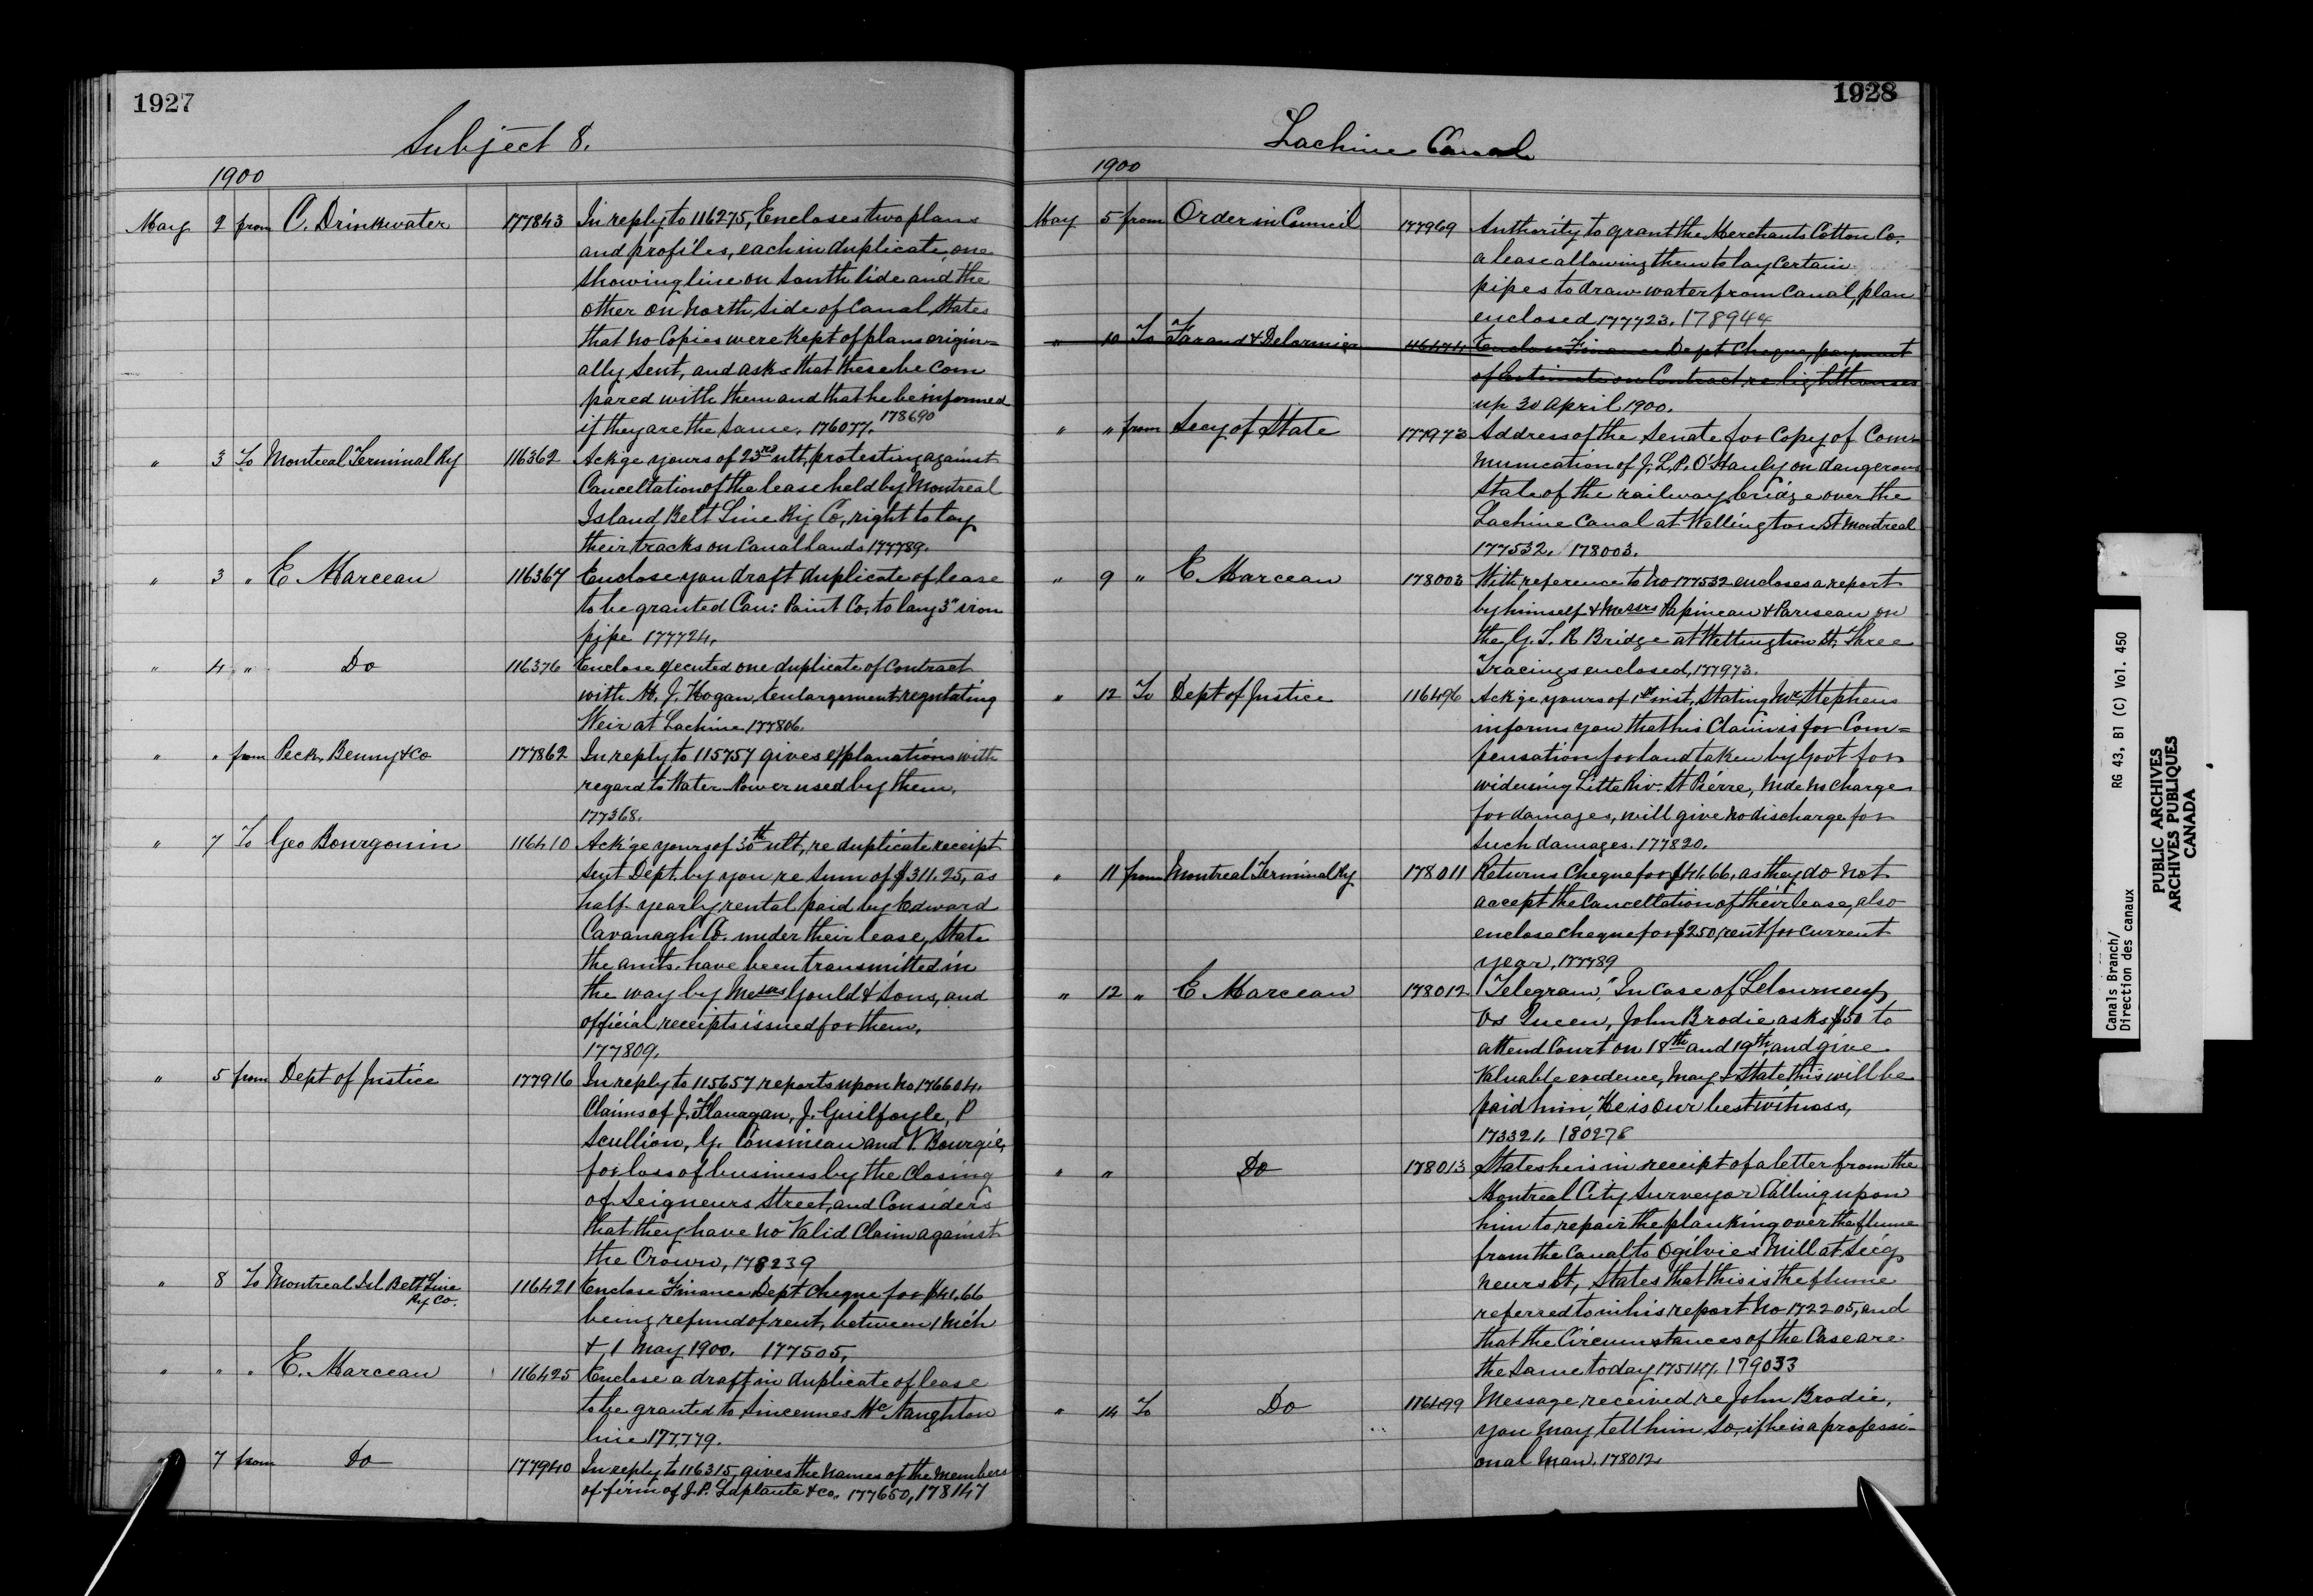 1927
Subject 8.
1900
May 2 from C. Drinkwater 177843 In reply to 116275, Encloses two plans
and profiles, each in duplicate, one
showing line on South side and the
other on North side of Canal, States
that no Copies were kept of plans origin=
ally sent, and asks that these be com
pared with them and that he be informed
if they are the same. 176077. 178690
" 3 To Montreal Terminal Ry 116362 Ackge yours of 23rd ult, protesting against
Cancellation of the lease held by Montreal
Island Belt Line Ry Co, right to lay
their tracks on Canal lands 177789.
" 3 " E Marceau 116367 Enclose you draft duplicate of lease
to be granted Can: Paint Co. to lay 3" iron
pipe 177724.
" 4 " Do 116376 Enclose executed one duplicate of contract
with M. J. Hogan, enlargement regulating
Weir at Lachine 177806.
" " from Peck, Benny & Co 177862 In reply to 115757 gives explanations with
regard to Water Power used by them,
177368.
" 7 To Geo Bourgouin 116410 Ackge yours of 30th ult, re duplicate receipt
sent Dept. by you re sum of $311.25, as
half-yearly rental paid by Edward
Cavanagh Co. under their lease, State
the amts. have been transmitted in
the way by Messrs Gould & Sons, and
official receipts issued for them.
177809.
" 5 from Dept of Justice 177916 In reply to 115657 reports upon No 176604.
Claims of J. Flanagan, J. Guilfoyle, P
Scullion, G. Cousineau and V. Bourgie,
for loss of business by the Closing
of Seigneurs Street, and Considers
that they have no Valid Claim against
the Crown, 178239
" 8 To Montreal Isl Belt Line
Ry Co. 116421 Enclose Finance Dept cheque for $41.66
being refund of rent, between 1 Mch
& 1 May 1900. 177505,
" " " E. Marceau 116425 Enclose a draft in duplicate of lease
to be granted to Sincennes McNaughton
line 177779.
7 from Do 177940 In reply to 116315, gives the names of the members
of firm of J. P. Laplante & Co. 177650, 178147
1928
Lachine Canal
1900
May 5 from Order in Council 177969 Authority to grant the Merchants Cotton Co.
a lease allowing them to lay certain
pipes to draw water from Canal, plan
enclosed 177723. 178944
" 10 To Farand & Delormier 46474 Enclose Finance Dept Cheque, payment
of Estimate on Contract, re lighthouses
up 30 April 1900.
" " from Secy of State 177973 Address of the Senate for Copy of Com-
munication of J. L. P. O'Hanly on dangerous
state of the railway bridge over the
Lachine Canal at Wellington St Montreal
177532. 178003.
" 9 " E Marceau 178003 With reference to No 177532 encloses a report
by himself & Messrs Papineau & Pariseau on
the G. T. R Bridge at Wellington St, Three
Tracings enclosed, 177973.
" 12 To Dept of Justice 116496 Ackge yours of 1st inst, stating Mr. Stephens
informs you that his Claim is for Com=
pensation for land taken by Govt for
widening Little Riv. St Pierre, Mde no charge
for damages, will give no discharge for
such damages. 177820.
" 11 from Montreal Terminal Ry 178011 Returns Cheque for $41.66, as they do not
accept the Cancellation of their lease, also
enclose cheque for $250, rent for current
year, 177789
" 12 " E Marceau 178012 Telegram, "In Case of Letourneux
Vs Queen, John Brodie asks $50 to
attend Court on 18th and 19th, and give
Valuable evidence, may I state this will be
paid him, He is our best witness,
173321. 180278
" " Do 178013 States he is in receipt of a letter from the
Montreal City Surveyor Calling upon
him to repair the planking over the flume
from the Canal to Ogilvies Mill at Seig
neurs St, States that this is the flume
referred to in his report No 172205, and
that the Circumstances of the Case are
the same today 175147. 179033
" 14 To Do 116499 Message received re John Brodie,
you may tell him so, if he is a professi-
onal man. 178012.
Canals Branch/
Direction des canaux
RG 43, B1 (C) Vol. 450
PUBLIC ARCHIVES
ARCHIVES PUBLIQUES
CANADA